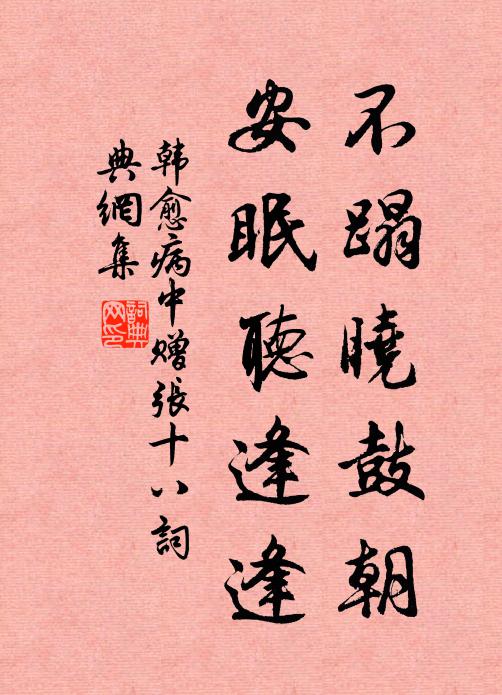 不蹋曉鼓朝
安眠聽逢逢
韩愈病中赠張十八詞
典網集
詞典
网印